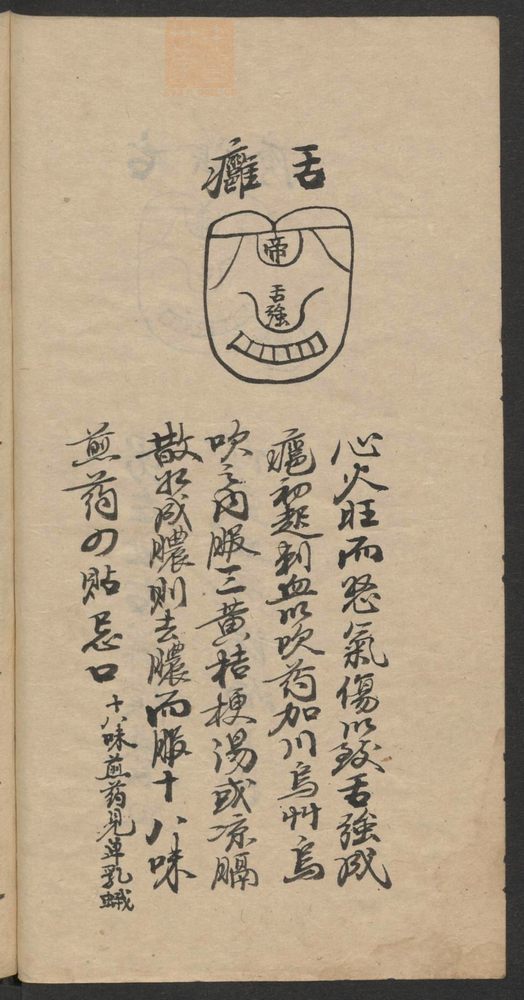 舌癰
帝
舌強
心火旺而怒氣傷以致舌強成
癰初起刺血以吹药加川烏艸烏
吹之内服三黄桔梗湯或凉膈
散如成膿則去膿而服十八味
煎药四貼忌口十八味煎药見单乳蛾